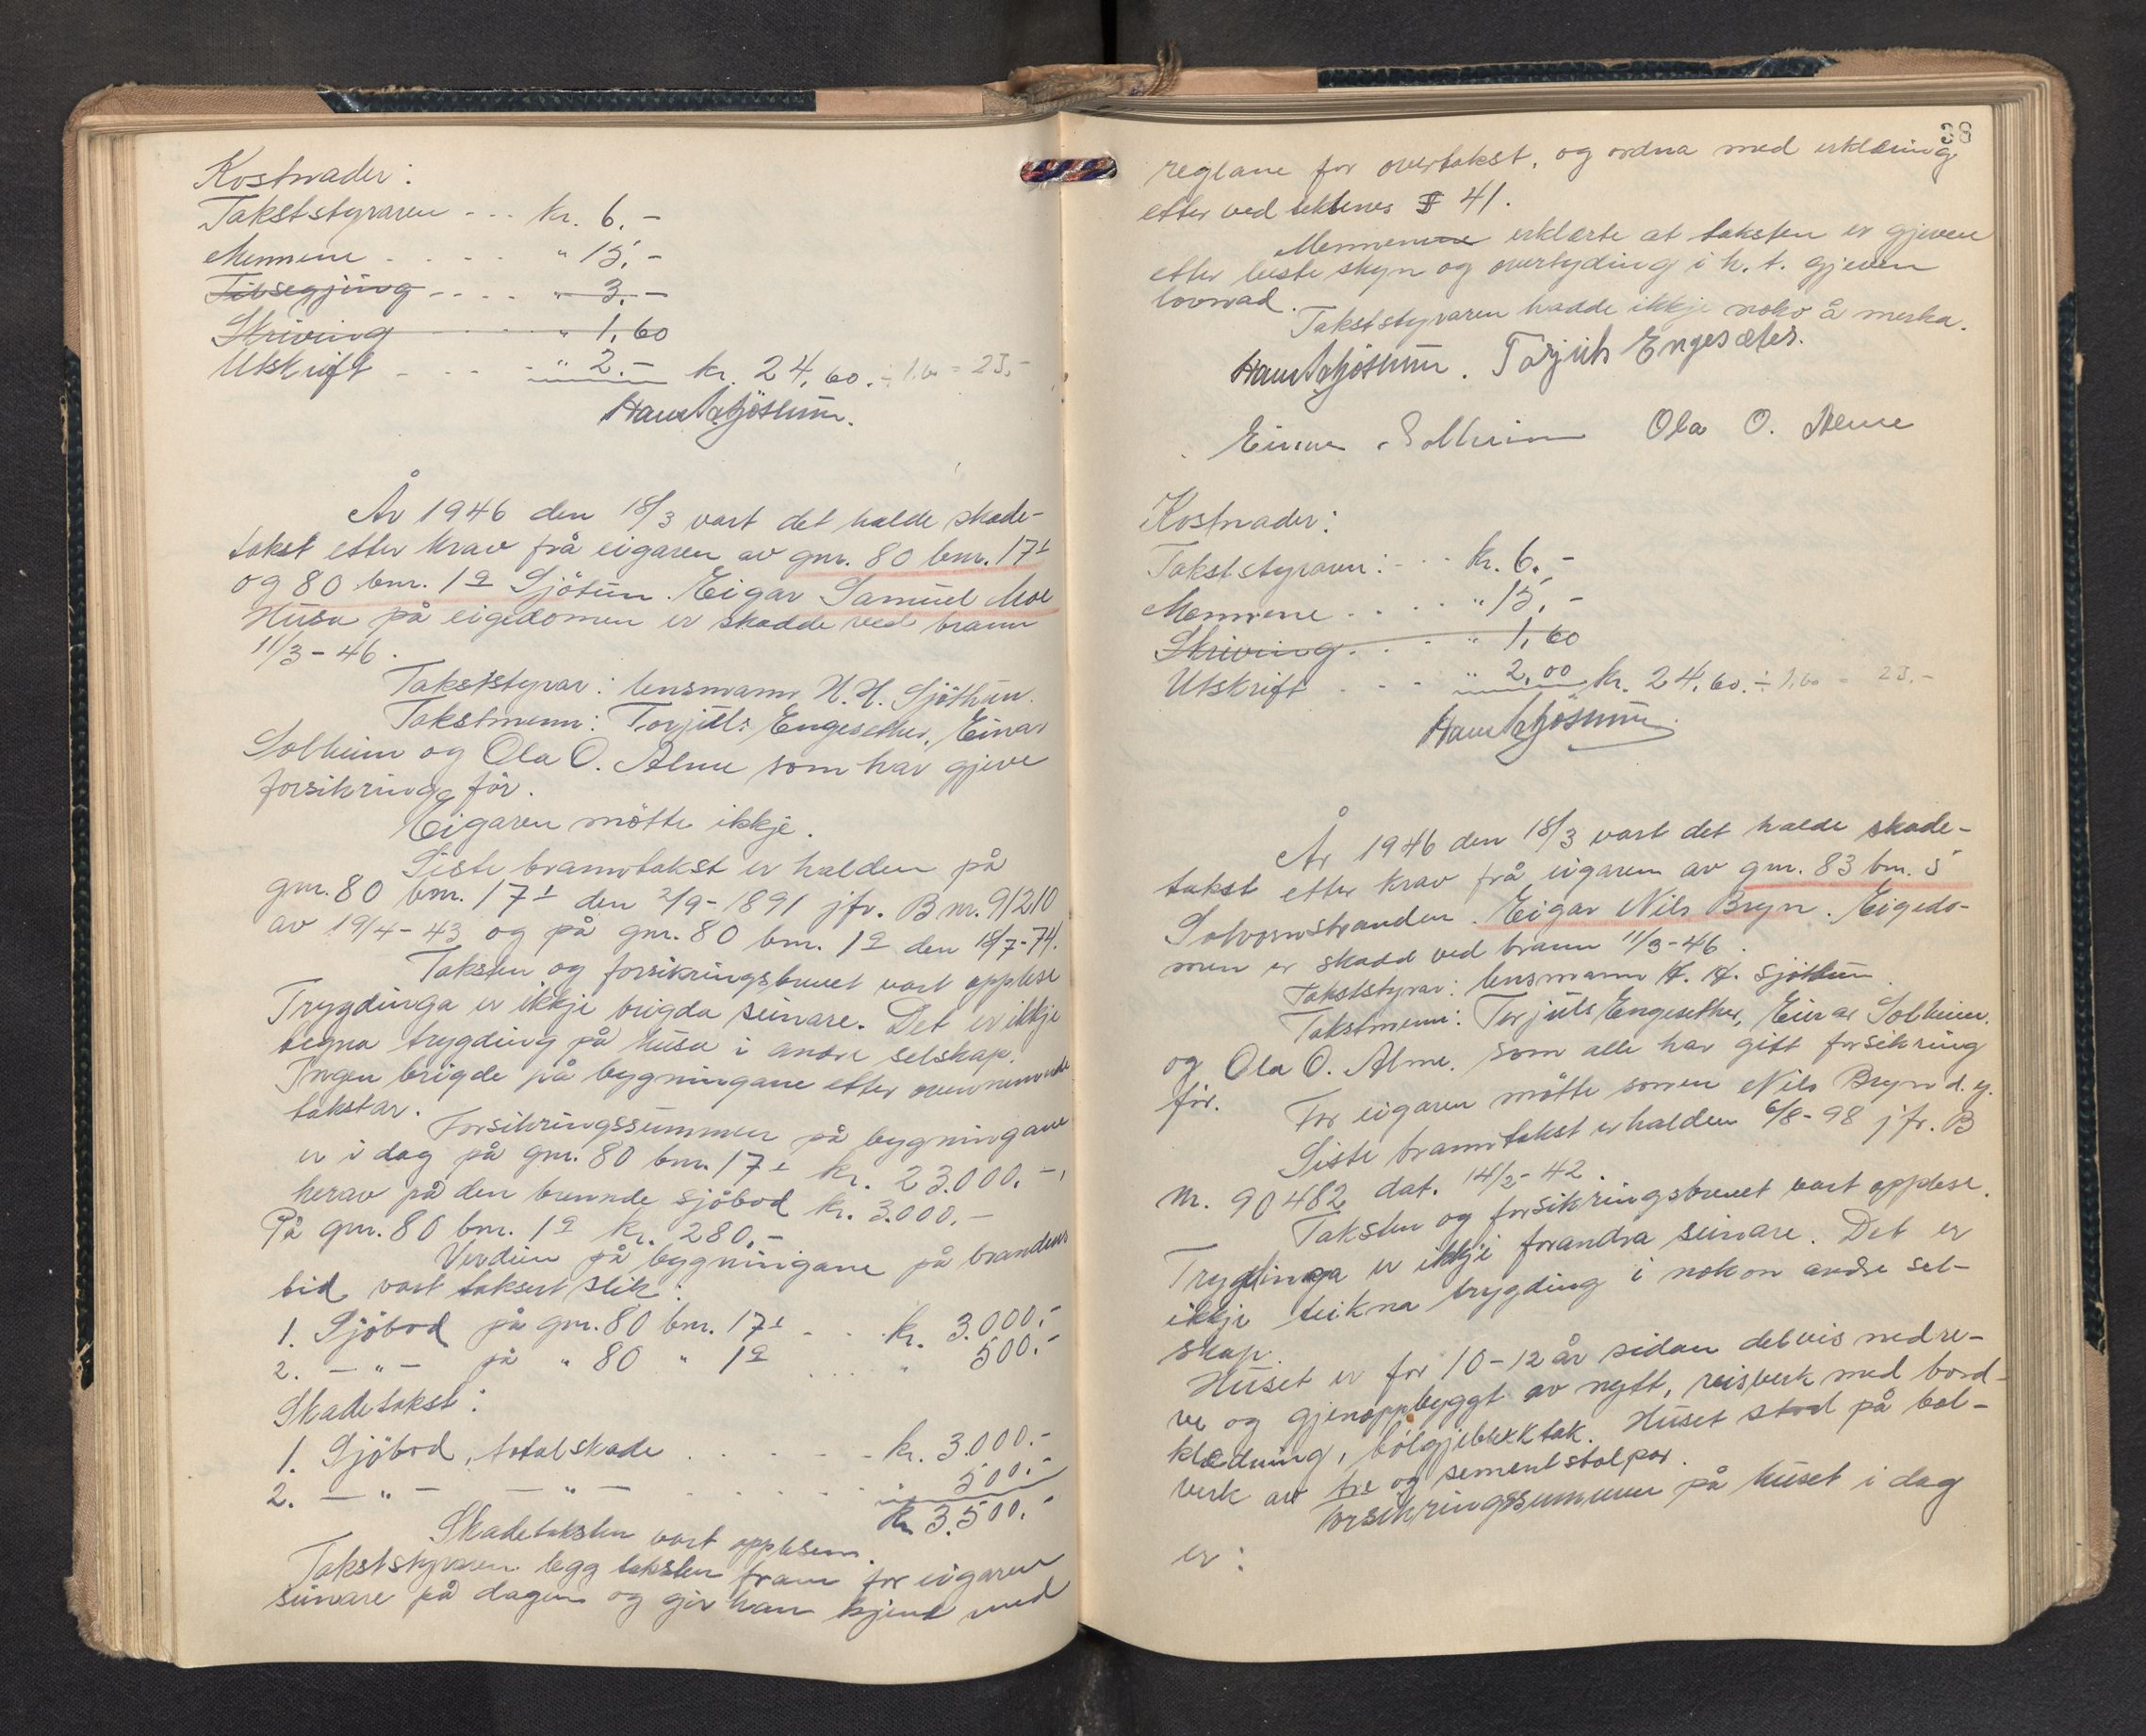 Kostnader:
Takststyraren - - - kr. 6.-
Mennene - - - - - " 15.-
Tilsegjing - - - - " 3.-
Skriving - - - - - " 1,60
Utskrift - - - - - " 2.- kr. 24,60. ÷ 1,60 = 23,-
Hans H Sjøthun.
År 1946 den 18/3 vart det halde skade-
takst etter krav frå eigaren av gnr. 80 bnr. 17¹
og 80 bnr. 1a Sjötun. Eigar Samuel Moe
Husa på eigedomen er skadde ved brann
11/3-46.
Takststyrar: lensmann H. H. Sjöthun.
Takstmenn: Torjuls Engesæther, Einar
Solheim og Ola O. Alme som har gjeve
forsikring för.
Eigaren mötte ikkje.
Siste branntakst er halden på
gnr. 80 bnr. 17¹ den 2/9-1891 jfr. B nr. 91210
av 19/4-43 og på gnr. 80 bnr. 1a den 18/7-74.
Taksten og forsikringsbrevet vart opplese
Trygdinga er ikkje brigda seinare. Det er ikkje
tegna trygding på husa i andre selskap.
Ingen brigde på bygningane etter ovennemnde
takstar.
Forsikringssummen på bygningane
er i dag på gnr. 80 bnr. 17¹ kr. 23.000.-,
herav på den brennde sjöbod kr. 3.000.-
På gnr. 80 bnr. 1a kr. 280.-
Verdien på bygningane på brandens
tid vart taksert slik:
1. Sjöbod på gnr. 80 bnr. 17¹ - . . kr. 3.000.-
2. - " - på " 80 " 1a . . . . " 500.-
Skadetakst:
1. Sjöbod, totalskade . . - - - - kr. 3.000.-
2. - " - - " - . . . . . . " 500.-
kr 3.500.-
Skadetaksten vart opplesen.
Takststyraren legg taksten fram for eigaren
seinare på dagen og gjer han kjend med
38
reglane for overtakst, og ordna med erklæring
etter vedtektenes § 41.
Mennene erklærte at taksten er gjeven
etter beste skyn og overtyding i h. t. gjeven
lovnad.
Takststyraren hadde ikkje noko å merka.
Hans H Sjøthun. Torjuls Engesæter.
Einar Solheim Ola O. Alme
Kostnader:
Takststyraren: - - - kr. 6.-
Mennene - . . . . " 15.-
Skriving. . . - " 1,60
Utskrift - - - " 2,00 kr. 24,60. ÷ 1,60 = 23.-
Hans H Sjøthun.
År 1946 den 18/3 vart det halde skade-
takst etter krav frå eigaren av gnr. 83 bnr. 5
Solvornstranden. Eigar Nils Bryn. Eigedo-
men er skadd ved brann 11/3-46.
Takststyrar: lensmann H. H. Sjöthun
Takstmenn: Torjuls Engesether, Einar Solheim.
og Ola O. Alme. som alle har gitt forsikring
för.
For eigaren mötte sonen Nils Bryn d. y.
Siste branntakst er halden 6/8-98 jfr. B
nr. 90482 dat. 14/2-42.
Taksten og forsikringsbrevet vart opplese.
Trygdinga er ikkje forandra seinare. Det er
ikkje teikna trygding i nokon andre sel-
skap.
Huset er for 10-12 år sidan delvis nedre-
ve og gjenoppbyggt av nytt, reisverk med bord-
klædning, bölgjeblekktak. Huset stod på bol-
verk av tre og sementstolpar.
Forsikringssummen på huset i dag
er: